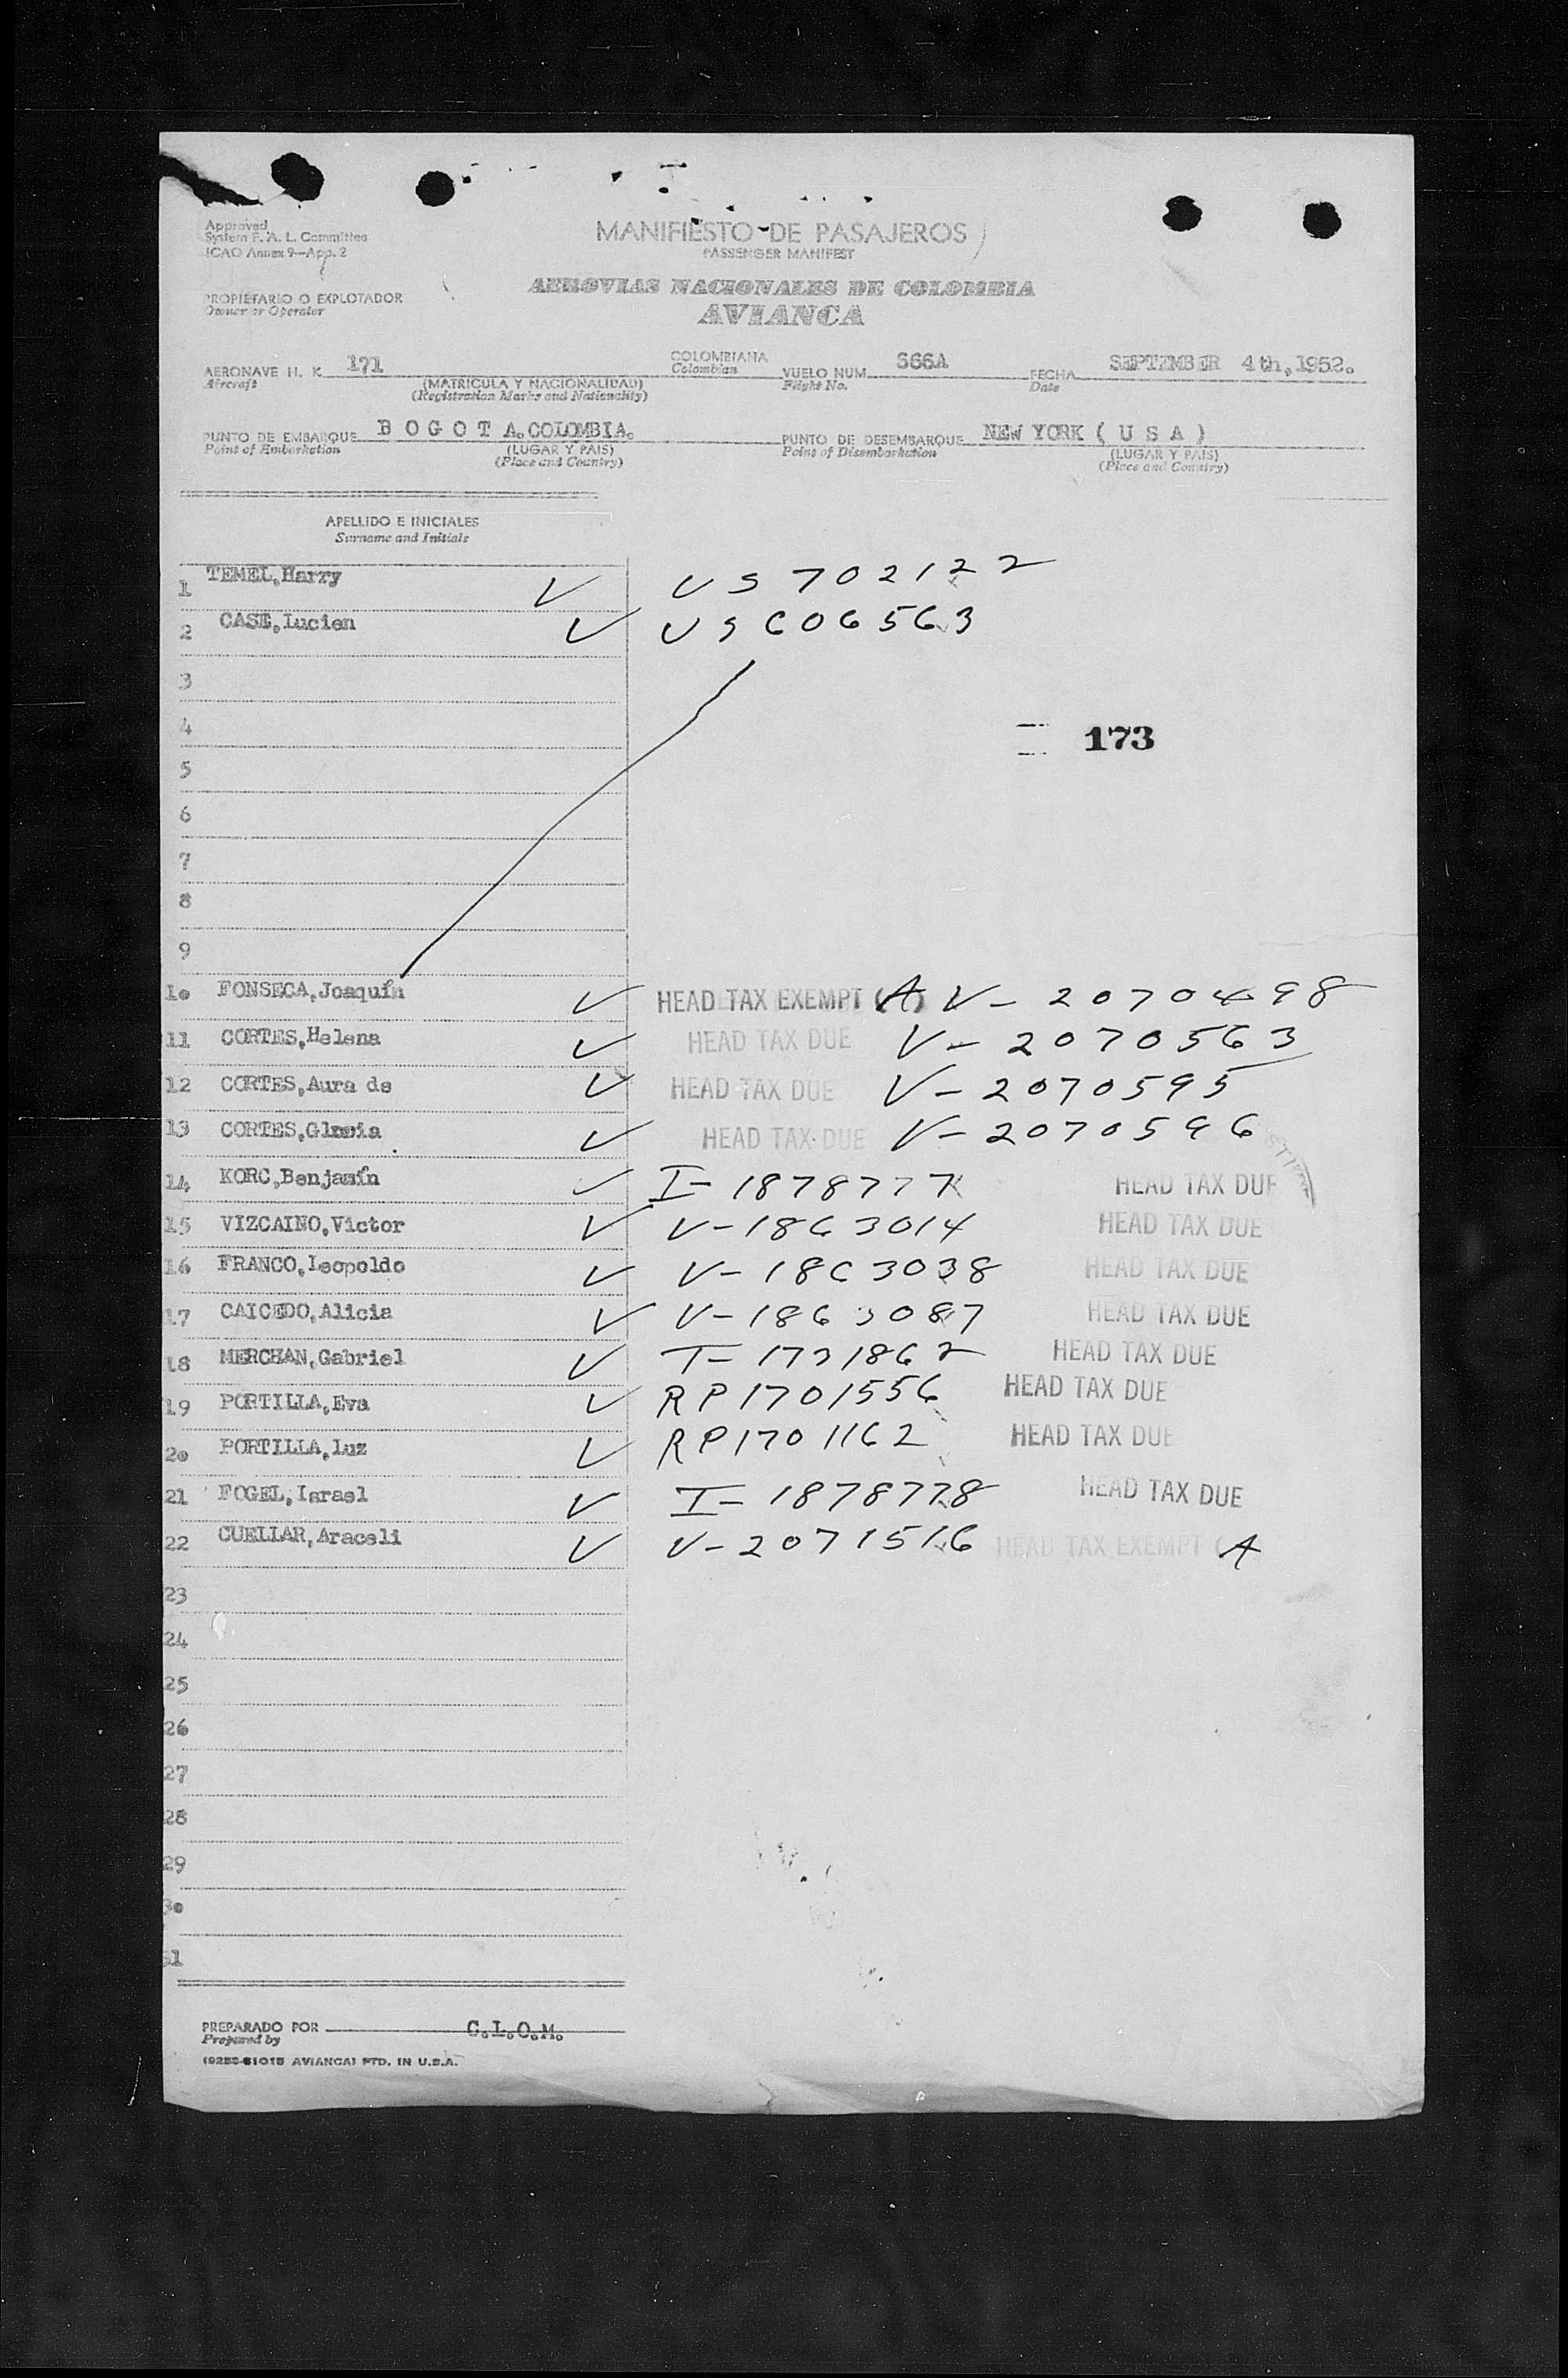 Approved
System F. A. L. Committee
ICAO Annex 9—App. 2
MANIFIESTO DE PASAJEROS
PASSENGER MANIFEST
PROPIETARIO O EXPLOTADOR
Owner or Operator
AEROVIAS NACIONALES DE COLOMBIA
AVIANCA
AERONAVE H. K. 171 COLOMBIANA VUELO NUM. 666A FECHA SEPTEMBER 4th,1952.
Aircraft (MATRICULA Y NACIONALIDAD) Colombian Flight No. Date
(Registration Marks and Nationality)
PUNTO DE EMBARQUE B O G O T A.COLOMBIA. PUNTO DE DESEMBARQUE NEW YORK ( U S A )
Point of Embarkation (LUGAR Y PAIS) Point of Disembarkation (LUGAR Y PAIS)
(Place and Country) (Place and Country)
APELLIDO E INICIALES
Surname and Initials
1 TEMEL,Harry V US 702122
2 CASE,Lucien V US 606563
3
4 173
5
6
7
8
9
10 FONSECA,Joaquín V HEAD TAX EXEMPT (A) V- 2070498
11 CORTES,Helena V HEAD TAX DUE V- 2070563
12 CORTES,Aura de V HEAD TAX DUE V- 2070595
13 CORTES, V HEAD TAX DUE V- 2070596
14 KORC,Benjamín V I- 1878777 HEAD TAX DUE
15 VIZCAINO,Victor V V-1863014 HEAD TAX DUE
16 FRANCO,Leopoldo V V-1863038 HEAD TAX DUE
17 CAICEDO,Alicia V V-1863087 HEAD TAX DUE
18 MERCHAN,Gabriel V T- 1731862 HEAD TAX DUE
19 PORTILLA,Eva V RP1701556 HEAD TAX DUE
20 PORTILLA,Luz V RP1701162 HEAD TAX DUE
21 FOGEL,Israel V I- 1878778 HEAD TAX DUE
22 CUELLAR,Araceli V V-2071516 HEAD TAX EXEMPT (A
23
24
25
26
27
28
29
30
31
PREPARADO POR C.L.O.M.
Prepared by
AVIANCA) PTD. IN U.S.A.